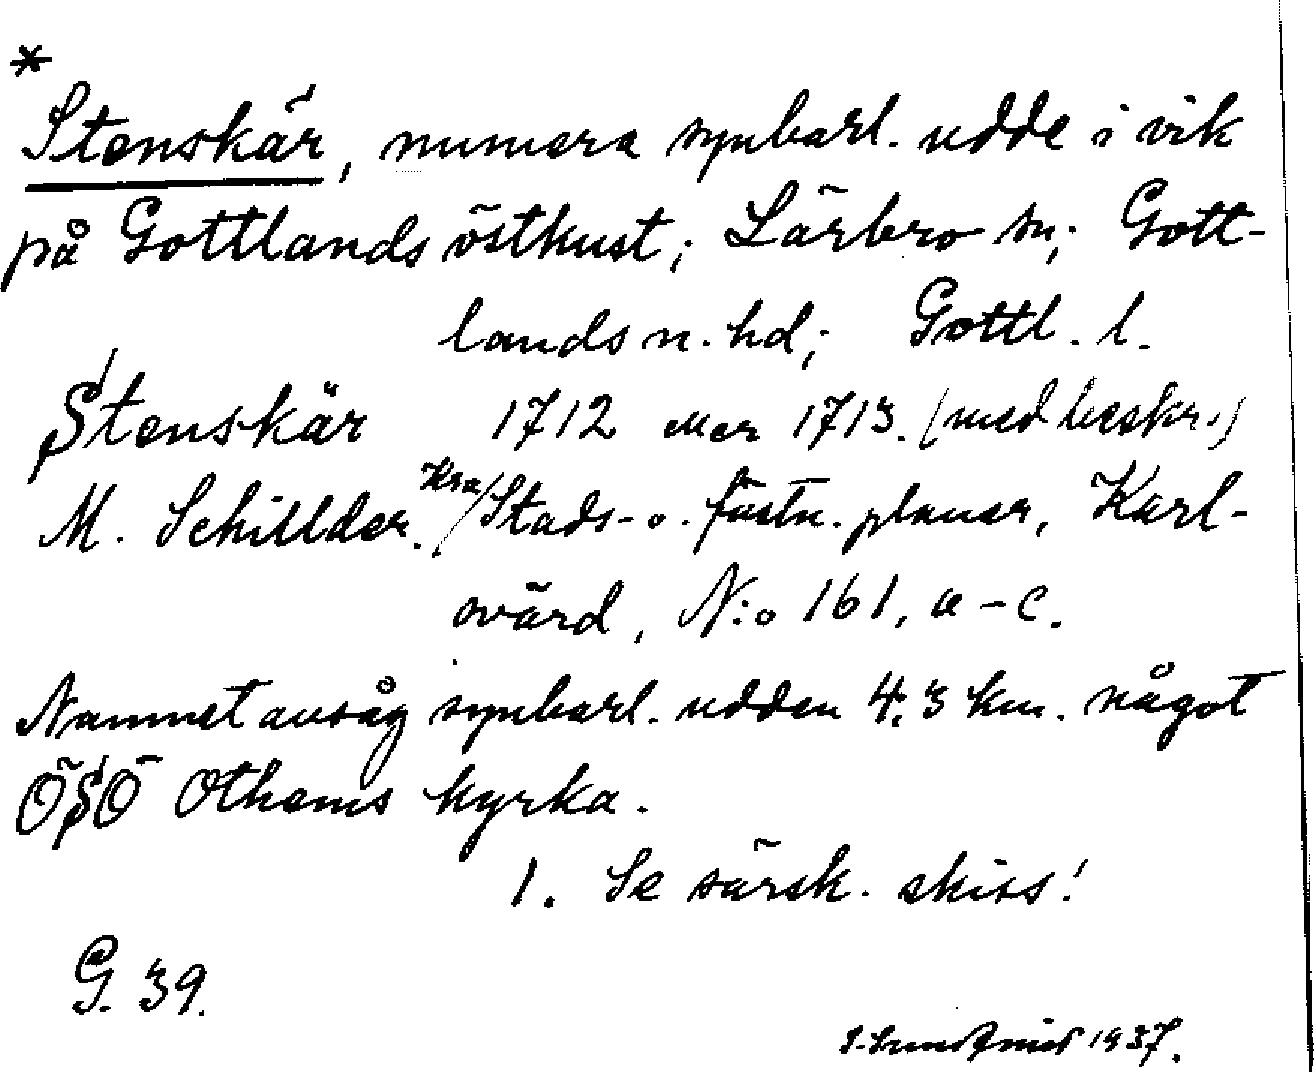 *
Stenskär, numera synbarl. udde i vik
på Gottlands östkust; Lärbro sn; Gott-
lands n. hd; Gottl. l.
Stenskär 1712 eller 1713. (med beskr.)
M. Schilder. KrA/Stads- o. fästn. planer, Karl-
svärd, N:o 161, a-c.
Namnet avsåg synbarl. udden 4,3 km. något
ÖSÖ Othems kyrka.
1. Se särsk. skiss!
G. 39.
1937.